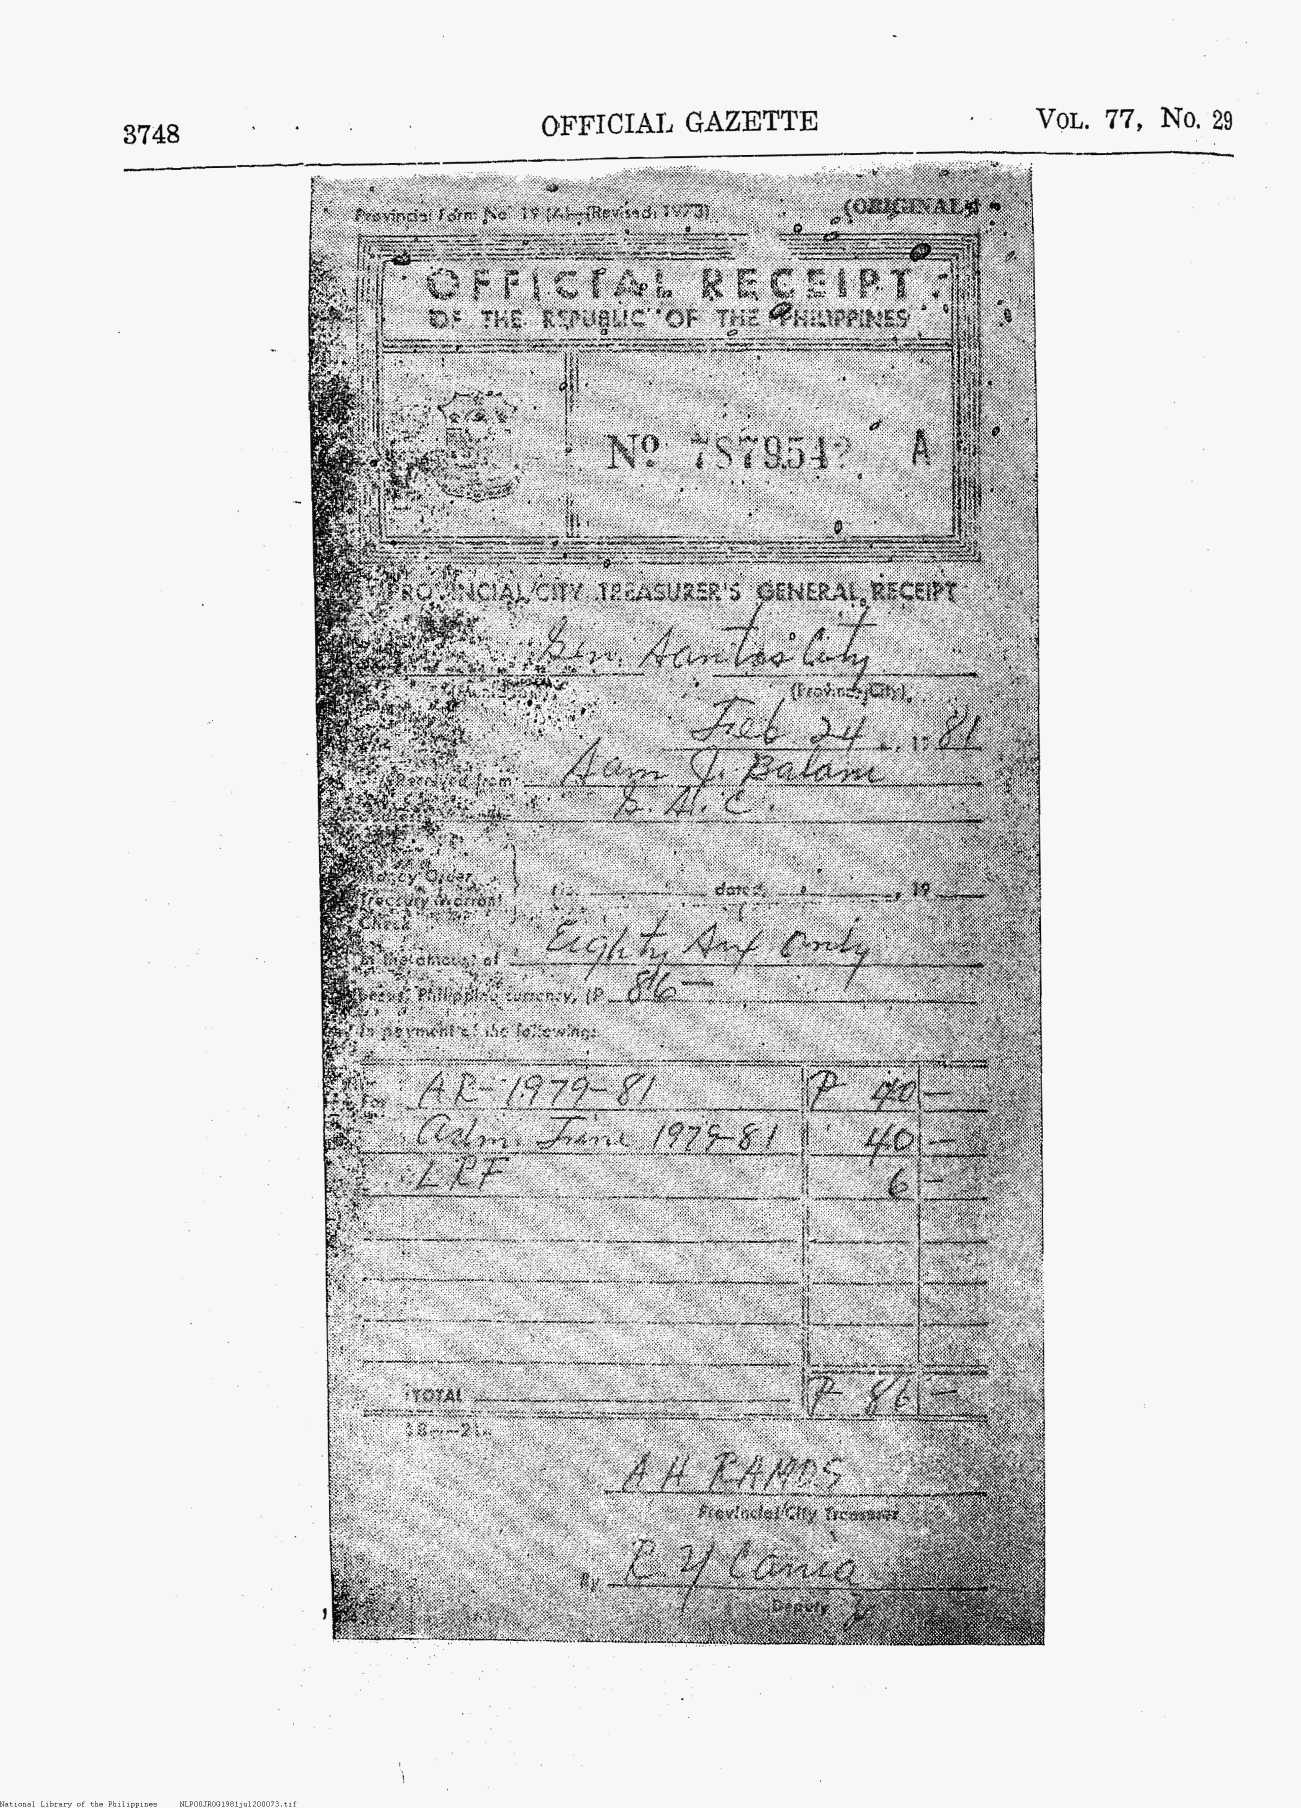 3748 OFFICIAL GAZETTE VOL. 77, No. 29
Provincial Form No. 19 (A)—(Revised: 1973) (ORIGINAL)
OFFICIAL RECEIPT
OF THE REPUBLIC OF THE PHILIPPINES
Nº 7879542 A
PROVINCIAL/CITY TREASURER'S GENERAL RECEIPT
Gen. Santos City
(Province/City)
Feb 24, 1981
Received from Sam J. Balani
G. S. C.
Money Order
Treasury Warrant dated , 19
Check
In the amount of Eighty Six Only
Philippine currency, (P 86—
In payment of the following:
For AR-1979-81 P 40 —
Adm. Fine 1979-81 40 —
LRF 6 —
TOTAL P 86 —
A H RAMOS
Provincial/City Treasurer
By R Y Cania
Deputy
National Library of the Philippines NLPOOJROG1981jul200073.tif